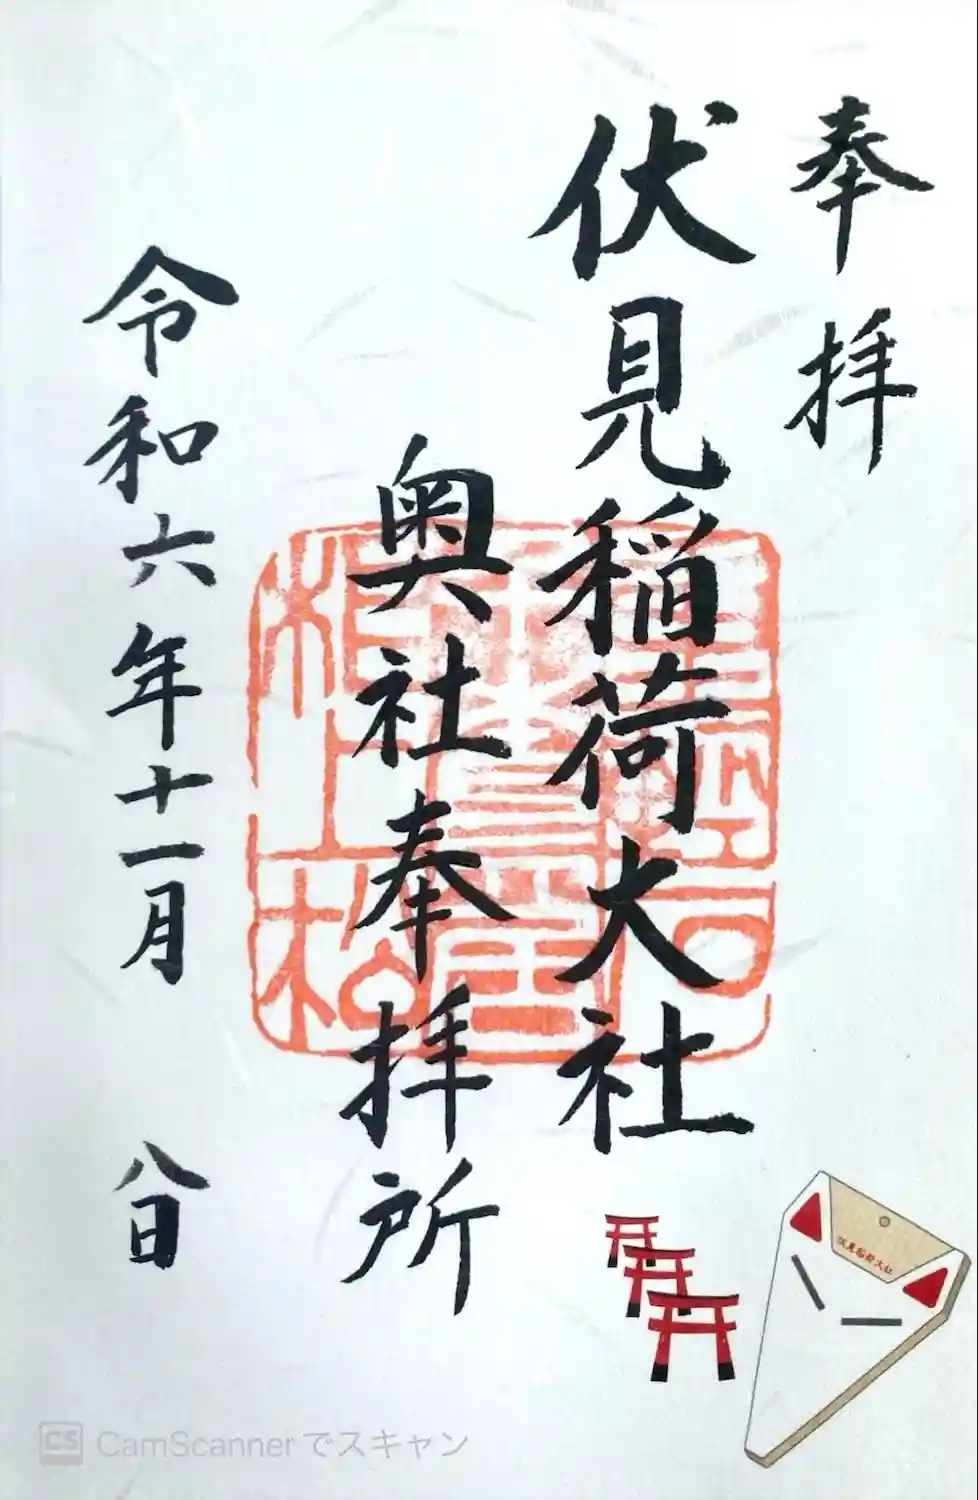 奉拝
伏見稲荷大社
奥社奉拝所
令和六年十一月 八日
伏見稲荷大社
CS CamScannerでスキャン